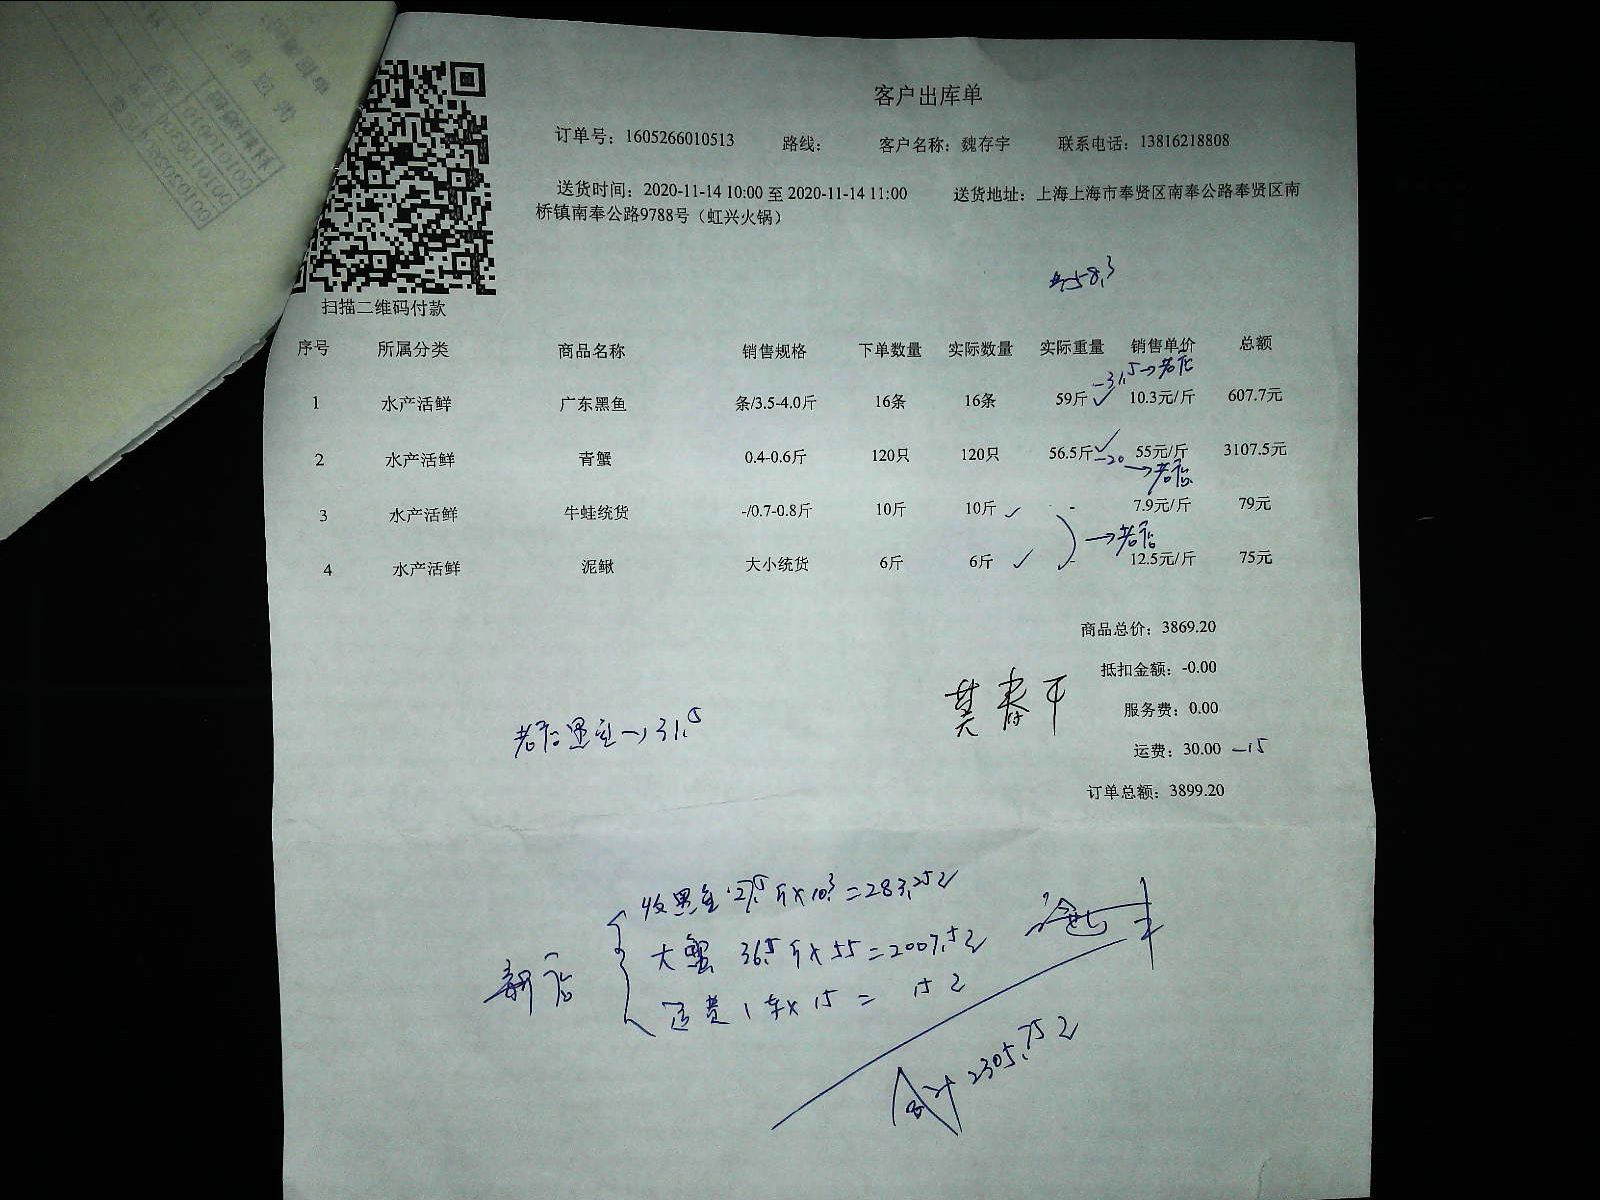 客户出库单
订单号：1605266010513 路线： 客户名称：魏存宇 联系电话：13816218808
送货时间：2020-11-14 10:00 至 2020-11-14 11:00 送货地址：上海上海市奉贤区南奉公路奉贤区南
桥镇南奉公路9788号（虹兴火锅）
58.3
扫描二维码付款
序号 所属分类 商品名称 销售规格 下单数量 实际数量 实际重量 销售单价 总额
-31.5→老店
1 水产活鲜 广东黑鱼 条/3.5-4.0斤 16条 16条 59斤 10.3元/斤 607.7元
2 水产活鲜 青蟹 0.4-0.6斤 120只 120只 56.5斤 55元/斤 3107.5元
-20→老店
3 水产活鲜 牛蛙统货 -/0.7-0.8斤 10斤 10斤 - 7.9元/斤 79元
→老店
4 水产活鲜 泥鳅 大小统货 6斤 6斤 - 12.5元/斤 75元
商品总价：3869.20
抵扣金额：-0.00
服务费：0.00
运费：30.00 -15
订单总额：3899.20
老店黑鱼→31.5
新店
收黑鱼27.5斤×10.3=283.25元
大蟹 36.5斤×55=2007.5元
运费1车×15= 15元
合计2305.75元